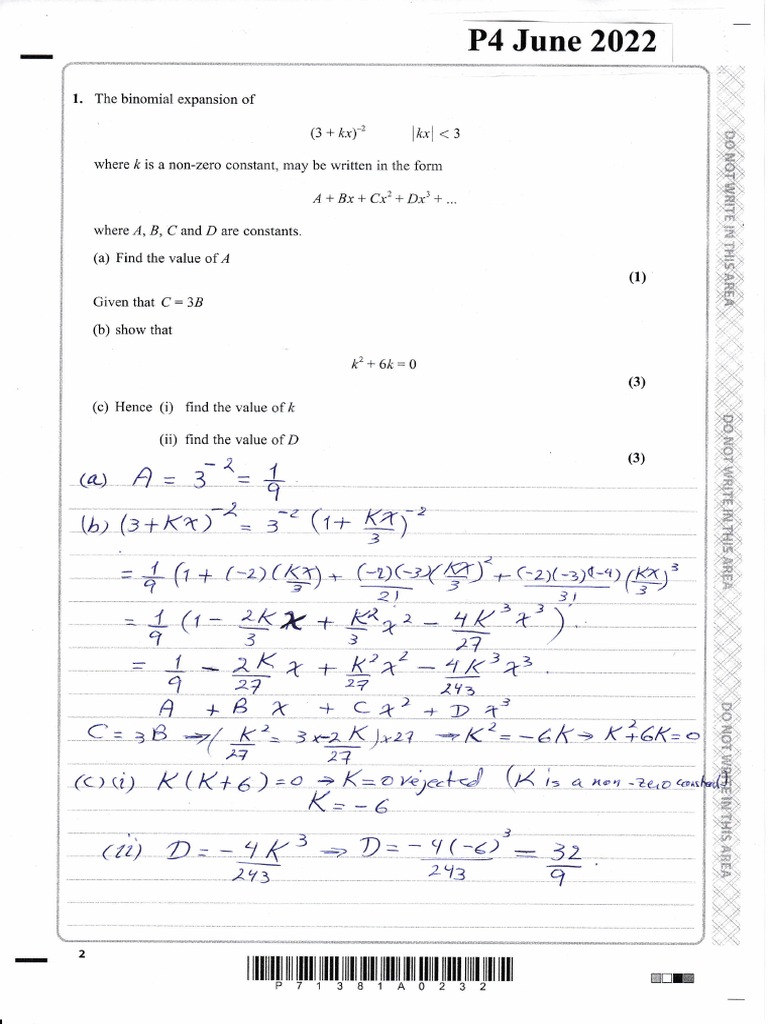 P4 June 2022
1. The binomial expansion of
(3 + kx)⁻² |kx| < 3
where k is a non-zero constant, may be written in the form
A + Bx + Cx² + Dx³ + ...
where A, B, C and D are constants.
(a) Find the value of A
(1)
Given that C = 3B
(b) show that
k² + 6k = 0
(3)
(c) Hence (i) find the value of k
(ii) find the value of D
(3)
(a) A = 3⁻² = 1/9
(b) (3+Kx)⁻² = 3⁻² (1 + Kx/3)⁻²
= 1/9 (1 + (-2)(Kx/3) + (-2)(-3)/2! (Kx/3)² + (-2)(-3)(-4)/3! (Kx/3)³
= 1/9 (1 - 2K/3 x + K²/3 x² - 4K³/27 x³).
= 1/9 - 2K/27 x + K²/27 x² - 4K³/243 x³.
A + B x + C x² + D x³
C = 3B → (K²/27 = 3x-2K/27) x27 → K² = -6K → K²+6K = 0
(c) (i) K(K+6) = 0 → K=0 rejected (K is a non-zero constant)
K = -6
(ii) D = -4K³/243 → D = -4(-6)³/243 = 32/9.
2
P71381A0232
DO NOT WRITE IN THIS AREA
DO NOT WRITE IN THIS AREA
DO NOT WRITE IN THIS AREA